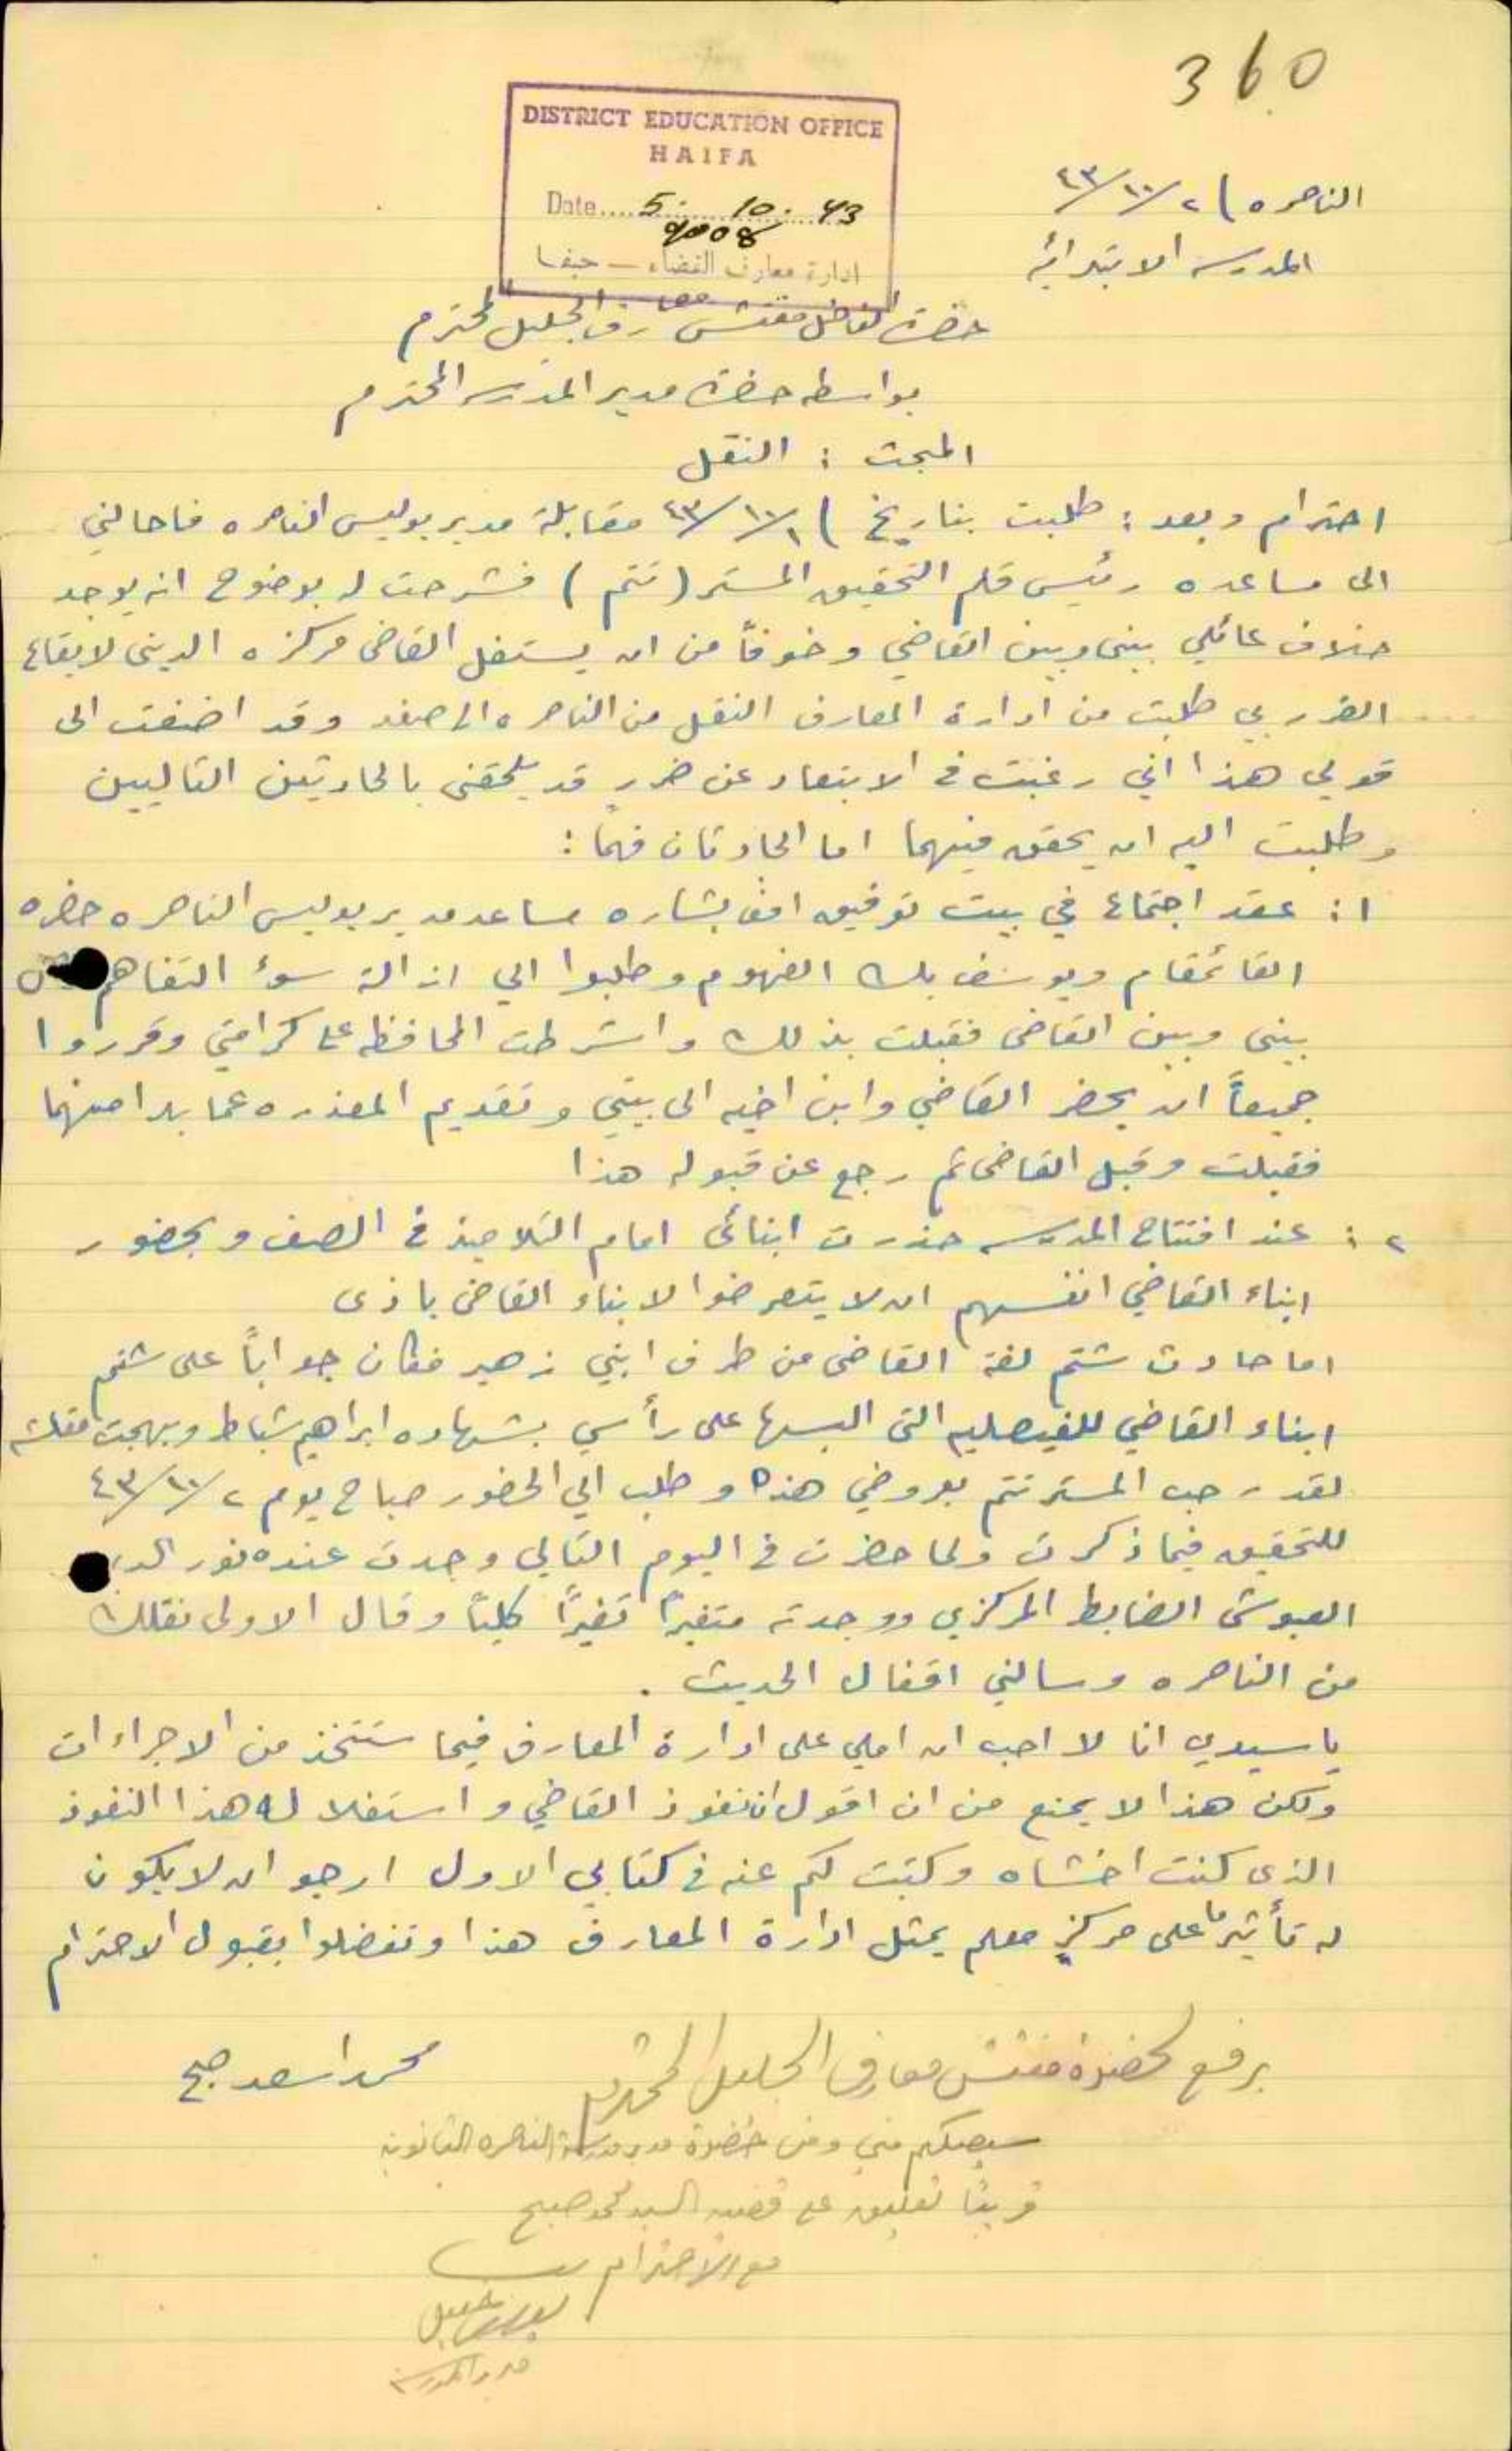 360
DISTRICT EDUCATION OFFICE
HAIFA
Date.... 5. 10. 43
9008
ادارة معارف القضاء — حيفا
الناصره ) ٢/١٠/٤٣
المدرسه الابتدائيه
حضرة الفاضل مفتش معارف الجليل المحترم
بواسطه حضرة مدير المدرسه المحترم
المبحث : النقل
احترام وبعد : طلبت بتاريخ ) ١/١٠/٤٣ مقابلة مدير بوليس الناصره فاحالني
الى مساعده رئيس قلم التحقيق المستر (تتم) فشرحت له بوضوح انه يوجد
خلاف عائلي بيني وبين القاضي وخوفاً من ان يستغل القاضي مركزه الديني لايقاع
الضرر بي طلبت من ادارة المعارف النقل من الناصره الى صفد وقد اضفت الى
قولي هذا اني رغبت في الابتعاد عن ضرر قد يلحقني بالحادثين التاليين
وطلبت اليه ان يحقق فيهما اما الحادثان فهما :
١ : عقد اجتماع في بيت توفيق افـ بشاره مساعد مدير بوليس الناصره حضره
القائمقام ويوسف بك الفهوم وطلبوا الي ازالة سوء التفاهم
بيني وبين القاضي فقبلت بذلك واشترطت المحافظه على كرامتي وقرروا
جميعاً ان يحضر القاضي وابن اخيه الى بيتي وتقديم المعذره عما بدا منهما
فقبلت وقبل القاضي ثم رجع عن قبوله هذا
٢ : عند افتتاح المدرسه حذرت ابنائي امام التلاميذ في الصف وبحضور
ابناء القاضي انفسهم ان لا يتعرضوا لابناء القاضي باذى
اما حادث شتم لفة القاضي من طرف ابني زهير فكان جواباً على شتم
ابناء القاضي للفيصليه التي البسها على رأسي بشهاده ابراهيم شباط وبهجت
لقد رحب المستر تتم بعروضي هذه وطلب الي الحضور صباح يوم ٢/١٠/٤٣
للتحقيق فيما ذكرت ولما حضرت في اليوم التالي وجدت عنده نور الدين
العبوشي الضابط المركزي ووجدته متغيراً تغيراً كلياً وقال الاولى نقلك
من الناصره وسالني اقفال الحديث .
يا سيدي انا لا احب ان املي على ادارة المعارف فيما ستتخذ من الاجراءات
ولكن هذا لا يمنع من ان اقول ان نفوذ القاضي واستغلاله هذا النفوذ
الذي كنت اخشاه وكتبت لكم عنه في كتابي الاول ارجو ان لا يكون
له تأثير ما على مركز معلم يمثل ادارة المعارف هذا وتفضلوا بقبول الاحترام
محمد اسعد صبح
يرفع لحضرة مفتش معارف الجليل المحترم
سيصلكم مني ومن حضرة مدير مدرسة الناصره الثانويه
قريباً تعليق على قضيه السيد محمد صبح
مع الاحترام
مدير المدرسه